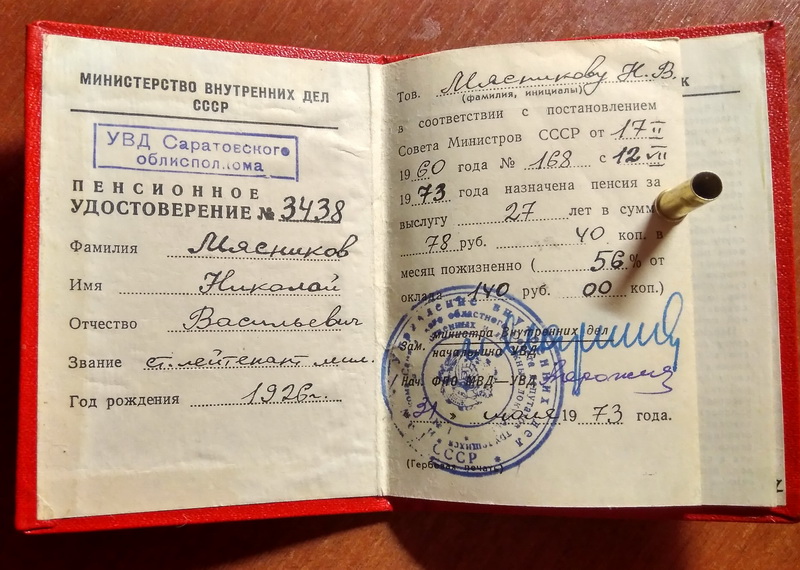 МИНИСТЕРСТВО ВНУТРЕННИХ ДЕЛ
СССР
УВД Саратовского
облисполкома
ПЕНСИОННОЕ
УДОСТОВЕРЕНИЕ № 3438
Фамилия Мясников
Имя Николай
Отчество Васильевич
Звание ст. лейтенант мил.
Год рождения 1926г.
Тов. Мясникову Н. В.
(фамилия, инициалы)
в соответствии с постановлением
Совета Министров СССР от 17 II
1960 года № 168 с 12 VII
1973 года назначена пенсия за
выслугу 27 лет в сумме
78 руб. 40 коп. в
месяц пожизненно ( 56 % от
оклада 140 руб. 00 коп.)
министра Внутренних дел
Зам. начальника УВД
Нач. ФПО МВД—УВД
31 июля 1973 года.
(Гербовая печать)
СССР
К